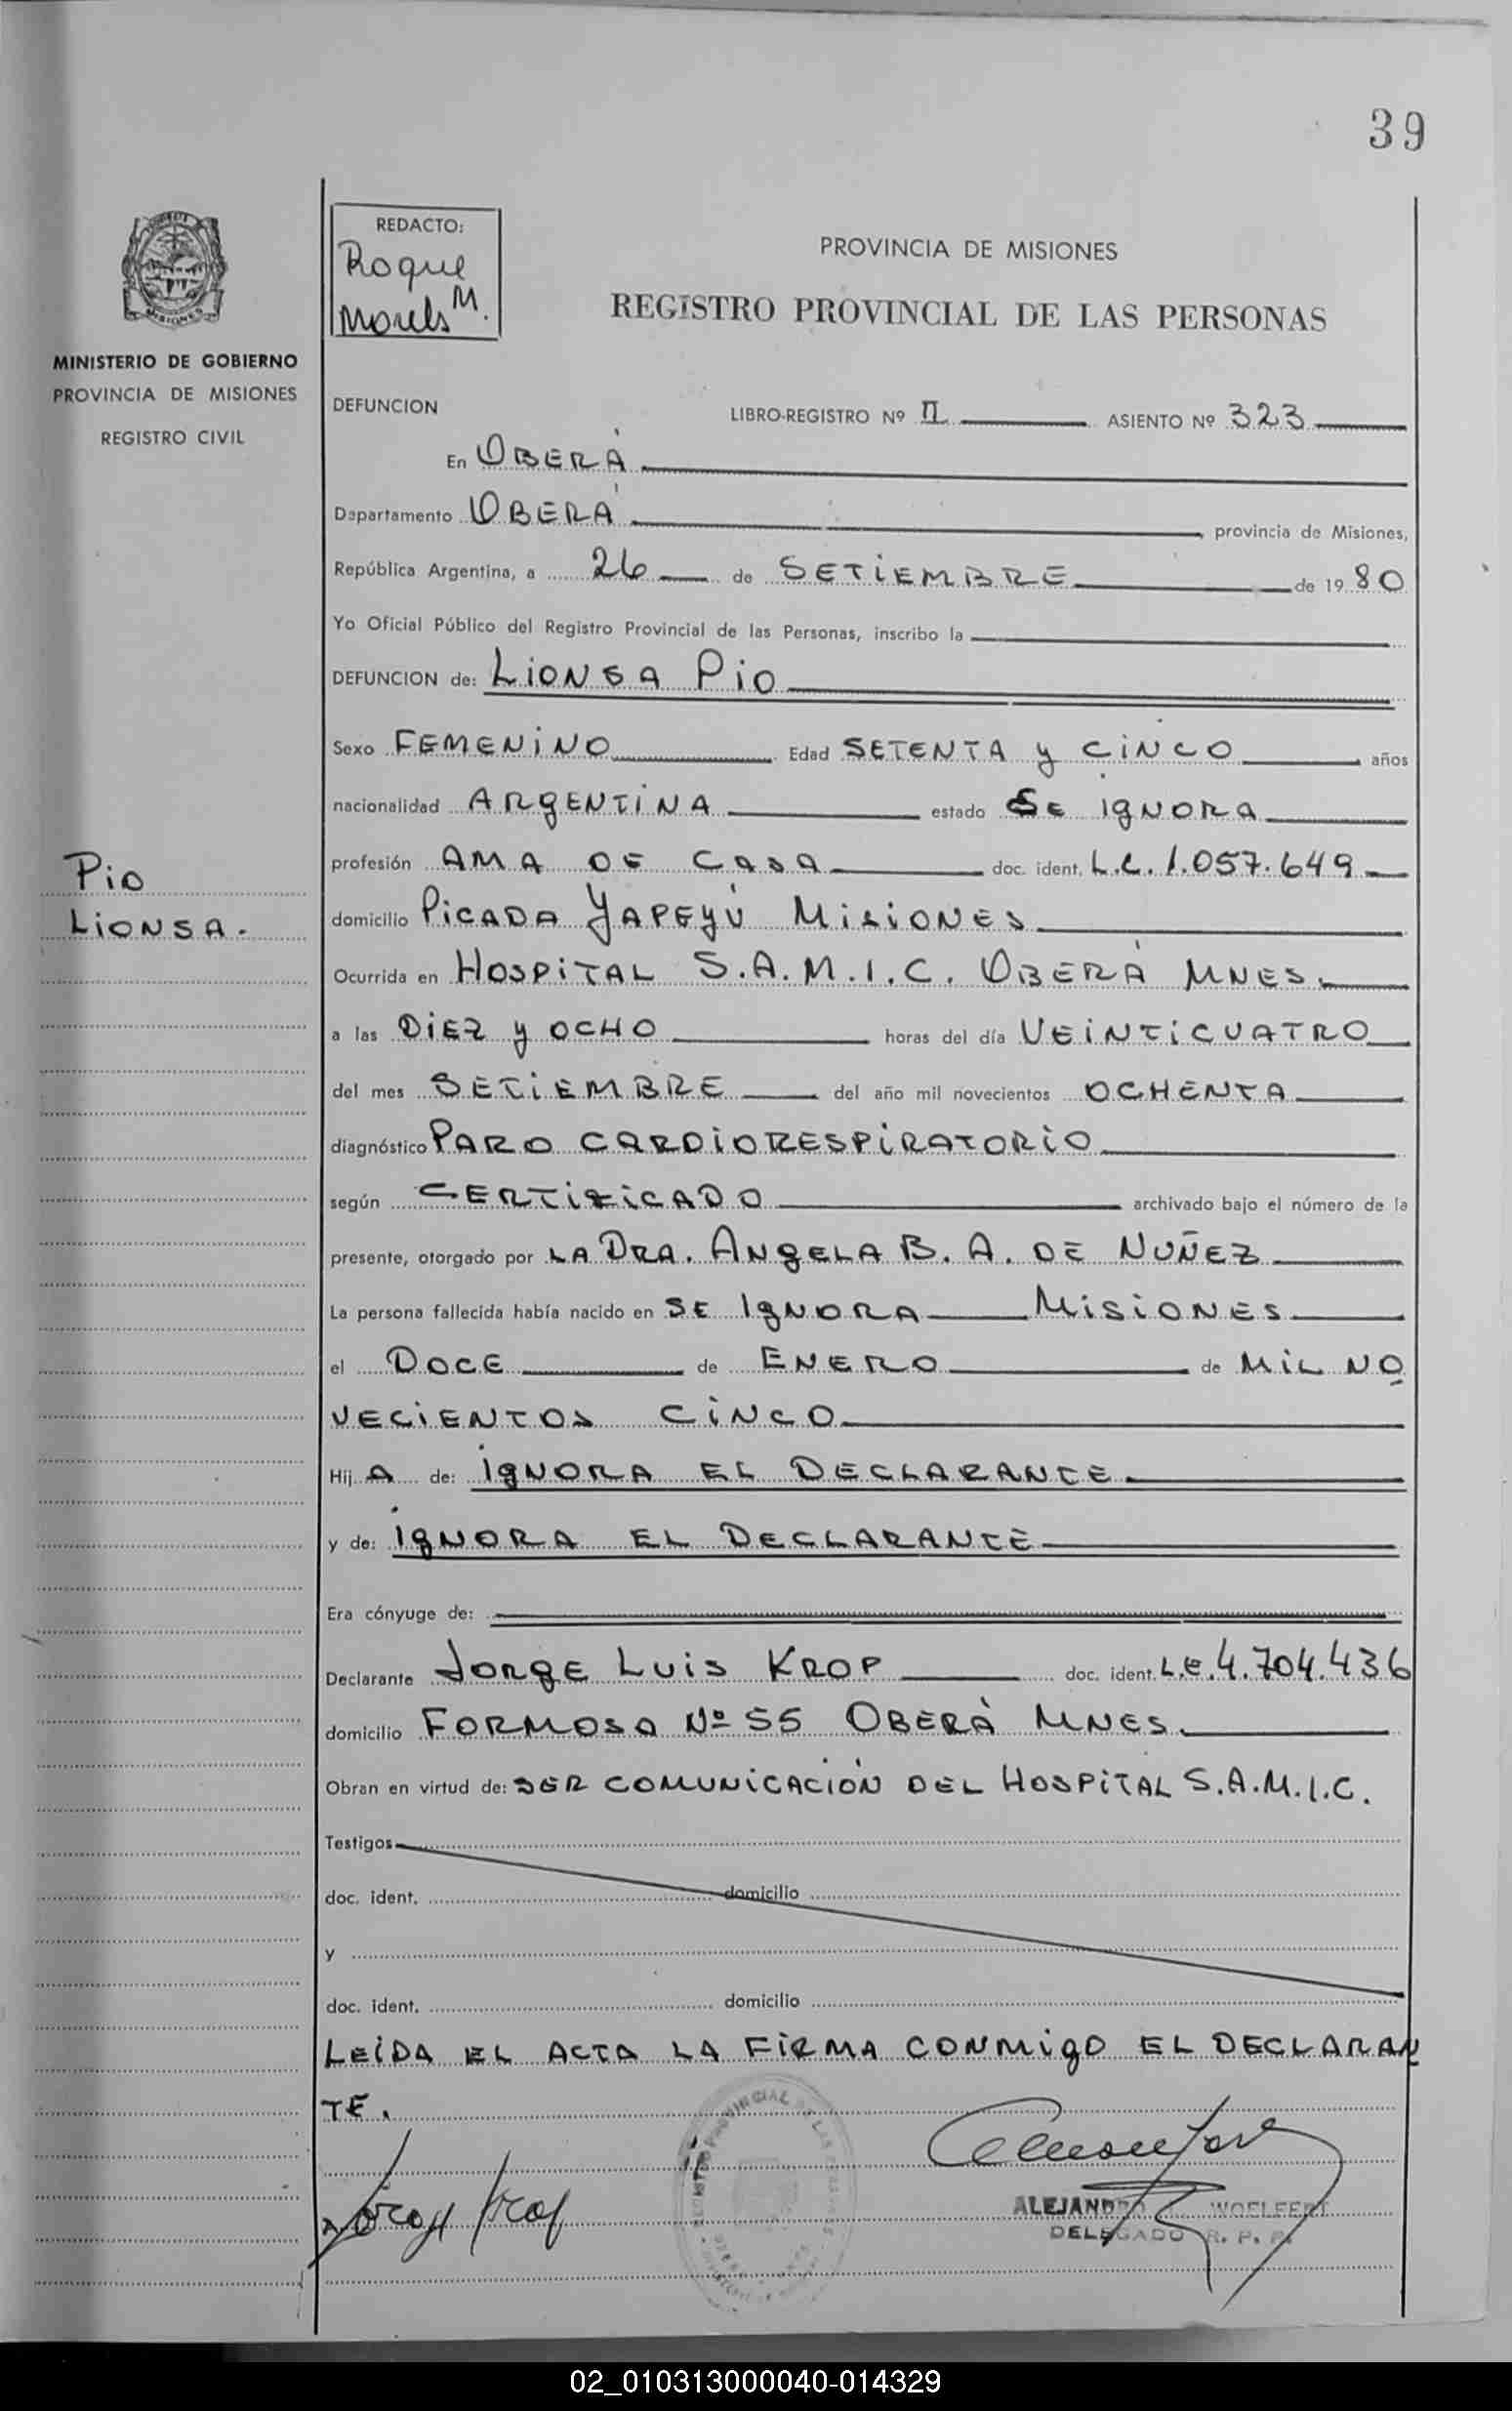 39
REDACTO:
Roque
Morels M.
PROVINCIA DE MISIONES
REGISTRO PROVINCIAL DE LAS PERSONAS
MINISTERIO DE GOBIERNO
PROVINCIA DE MISIONES
REGISTRO CIVIL
DEFUNCION LIBRO-REGISTRO Nº II ASIENTO Nº 323
En OBERÁ
Departamento OBERÁ provincia de Misiones,
República Argentina, a 26 de SETIEMBRE de 1980
Yo Oficial Público del Registro Provincial de las Personas, inscribo la
DEFUNCION de: LIONSA PIO
Sexo FEMENINO Edad SETENTA y CINCO años
nacionalidad ARGENTINA estado SE IGNORA
profesión AMA DE CASA doc. ident. L.C. 1.057.649
Pio
LIONSA.
domicilio PICADA YAPEYÚ MISIONES
Ocurrida en HOSPITAL S.A.M.I.C. OBERÁ MNES.
a las DIEZ y OCHO horas del día VEINTICUATRO
del mes SETIEMBRE del año mil novecientos OCHENTA
diagnóstico PARO CARDIORESPIRATORIO
según CERTIFICADO archivado bajo el número de la
presente, otorgado por LA DRA. ANGELA B. A. DE NUÑEZ
La persona fallecida había nacido en SE IGNORA MISIONES
el DOCE de ENERO de MIL NO
VECIENTOS CINCO
Hij A de: IGNORA EL DECLARANTE
y de: IGNORA EL DECLARANTE
Era cónyuge de:
Declarante JORGE LUIS KROP doc. ident. L.E. 4.704.436
domicilio FORMOSA Nº 55 OBERÁ MNES.
Obran en virtud de: SER COMUNICACIÓN DEL HOSPITAL S.A.M.I.C.
Testigos
doc. ident. domicilio
y
doc. ident. domicilio
LEÍDA EL ACTA LA FIRMA CONMIGO EL DECLARAN
TE.
ALEJANDRO WOELFERT
DELEGADO R. P. P.
02_010313000040-014329